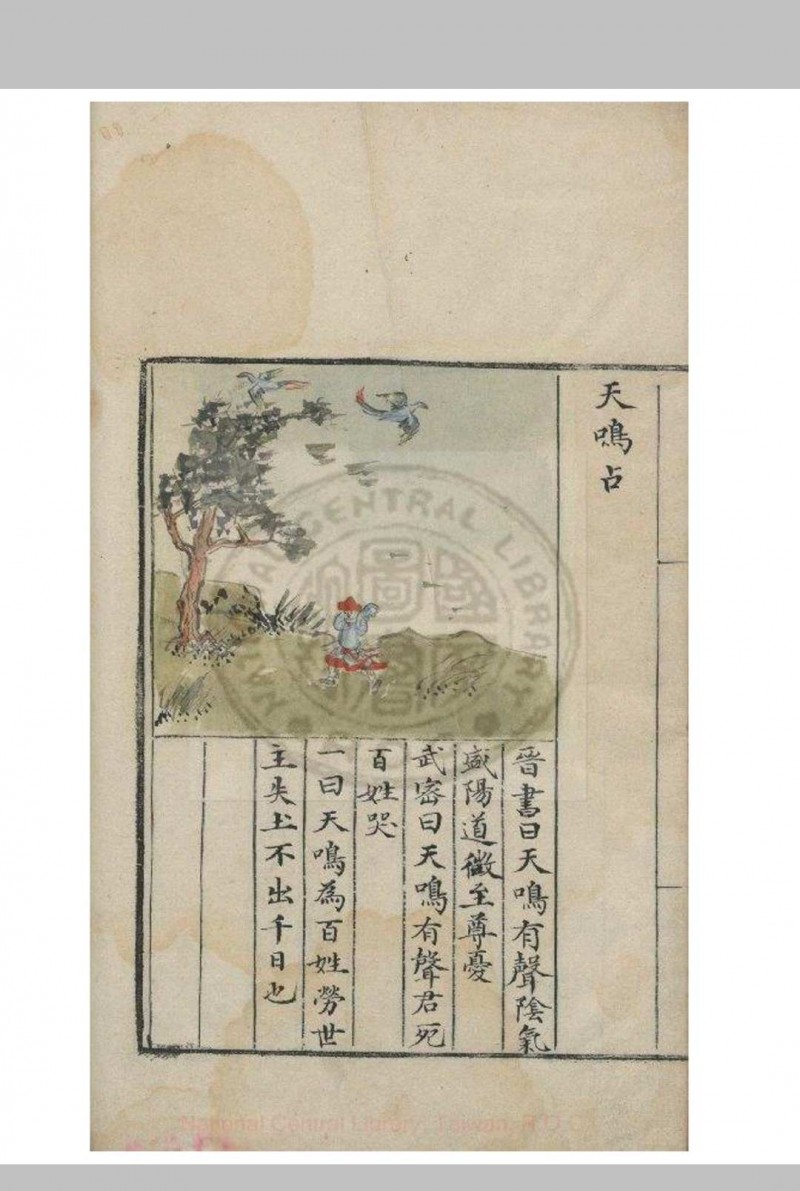 天鳴占
晉書曰天鳴有聲陰氣
盛陽道微至尊憂
武密曰天鳴有聲君死
百姓哭
一曰天鳴為百姓勞世
主失土不出千日也
NATIONAL CENTRAL LIBRARY
National Central Library, Taiwan, R.O.C